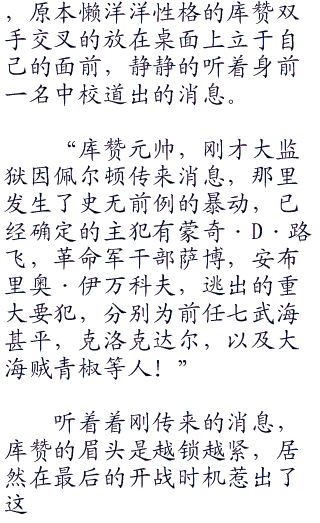 ，原本懒洋洋性格的库赞双
手交叉的放在桌面上立于自
己的面前，静静的听着身前
一名中校道出的消息。
“库赞元帅，刚才大监
狱因佩尔顿传来消息，那里
发生了史无前例的暴动，已
经确定的主犯有蒙奇·D·路
飞，革命军干部萨博，安布
里奥·伊万科夫，逃出的重
大要犯，分别为前任七武海
甚平，克洛克达尔，以及大
海贼青椒等人！”
听着着刚传来的消息，
库赞的眉头是越锁越紧，居
然在最后的开战时机惹出了
这